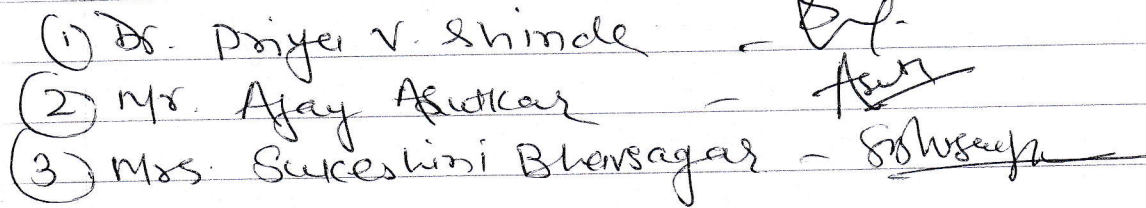 (1) Dr. Priya V. Shinde -
(2) Mr. Ajay Asutkar -
(3) Mrs. Sukeshini Bhavsagar -